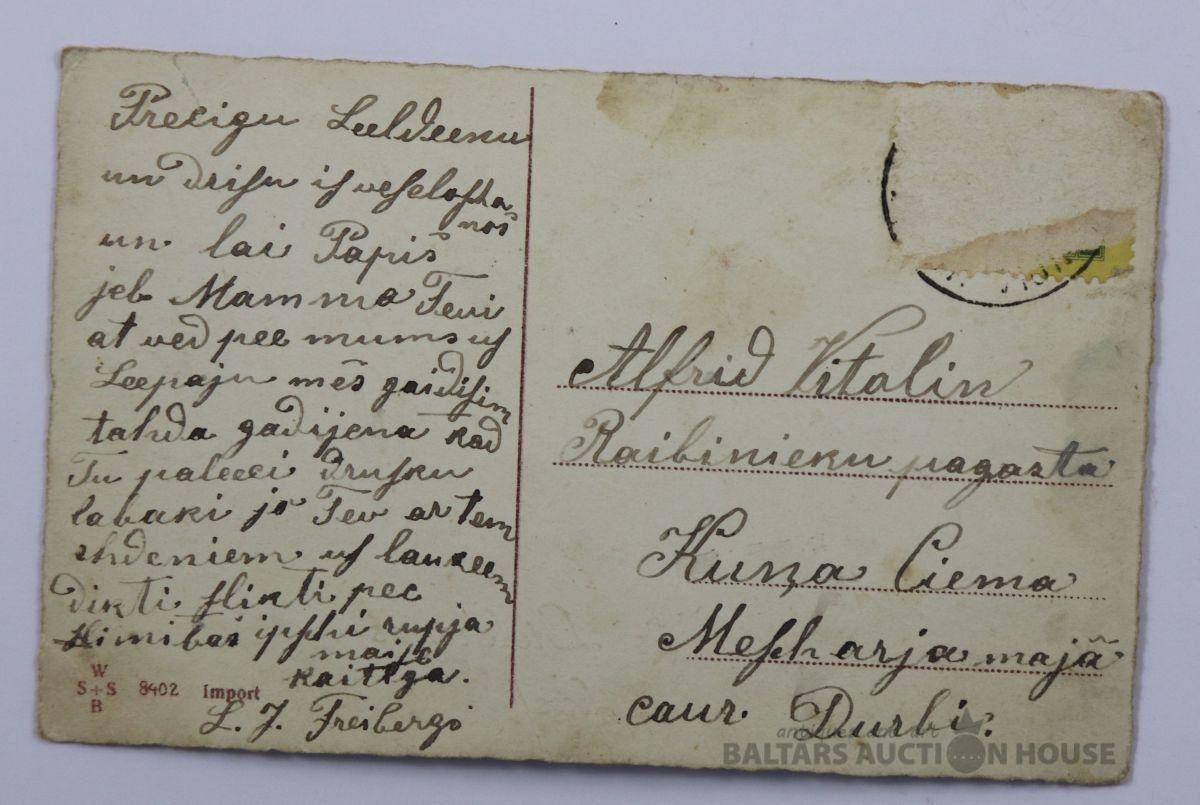 Preeigu Leeldeenu
un drihsu isweseloscha
nos
un lai Papiš
jeb Mamma Tewi
at wed pee mums us
Leepaju mēs gaidisim
tahda gadijena kad
Tu paleeci drusku
labaki jo Tew ar tem
ehdeniem us laukeem
dikti slikti pec
Kimibas ipschi rupja
maise
kaitiga.
L. J. Freibergs
W
S+S 8402 Import
B
Alfrid Vitolin
Raibinieku pagasta
Kuņa Ciema
Mescharja majā
caur Durbi.
BALTARS AUCTION HOUSE